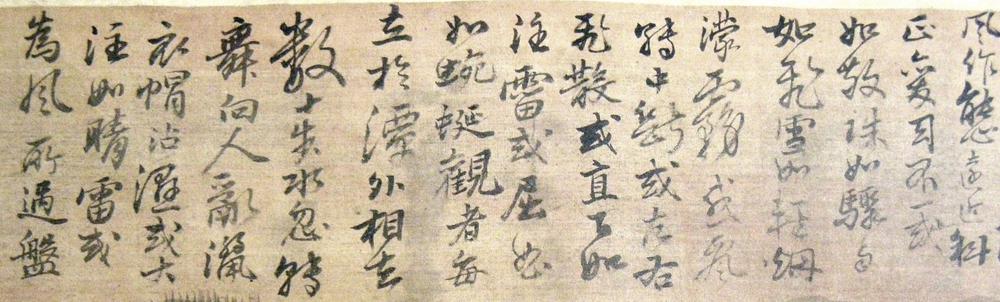 風作態遠近斜
正變不一或
如散珠如驟
如飛雪如輕烟
濛霧或
轉中斷或左右
飛散或直下如
注雷或屈如
如蜿蜒觀者每
立於潭外相去
數十步水忽轉
舞向人亂灑
衣帽沾濕或大
注如晴雷或
為風所遏盤